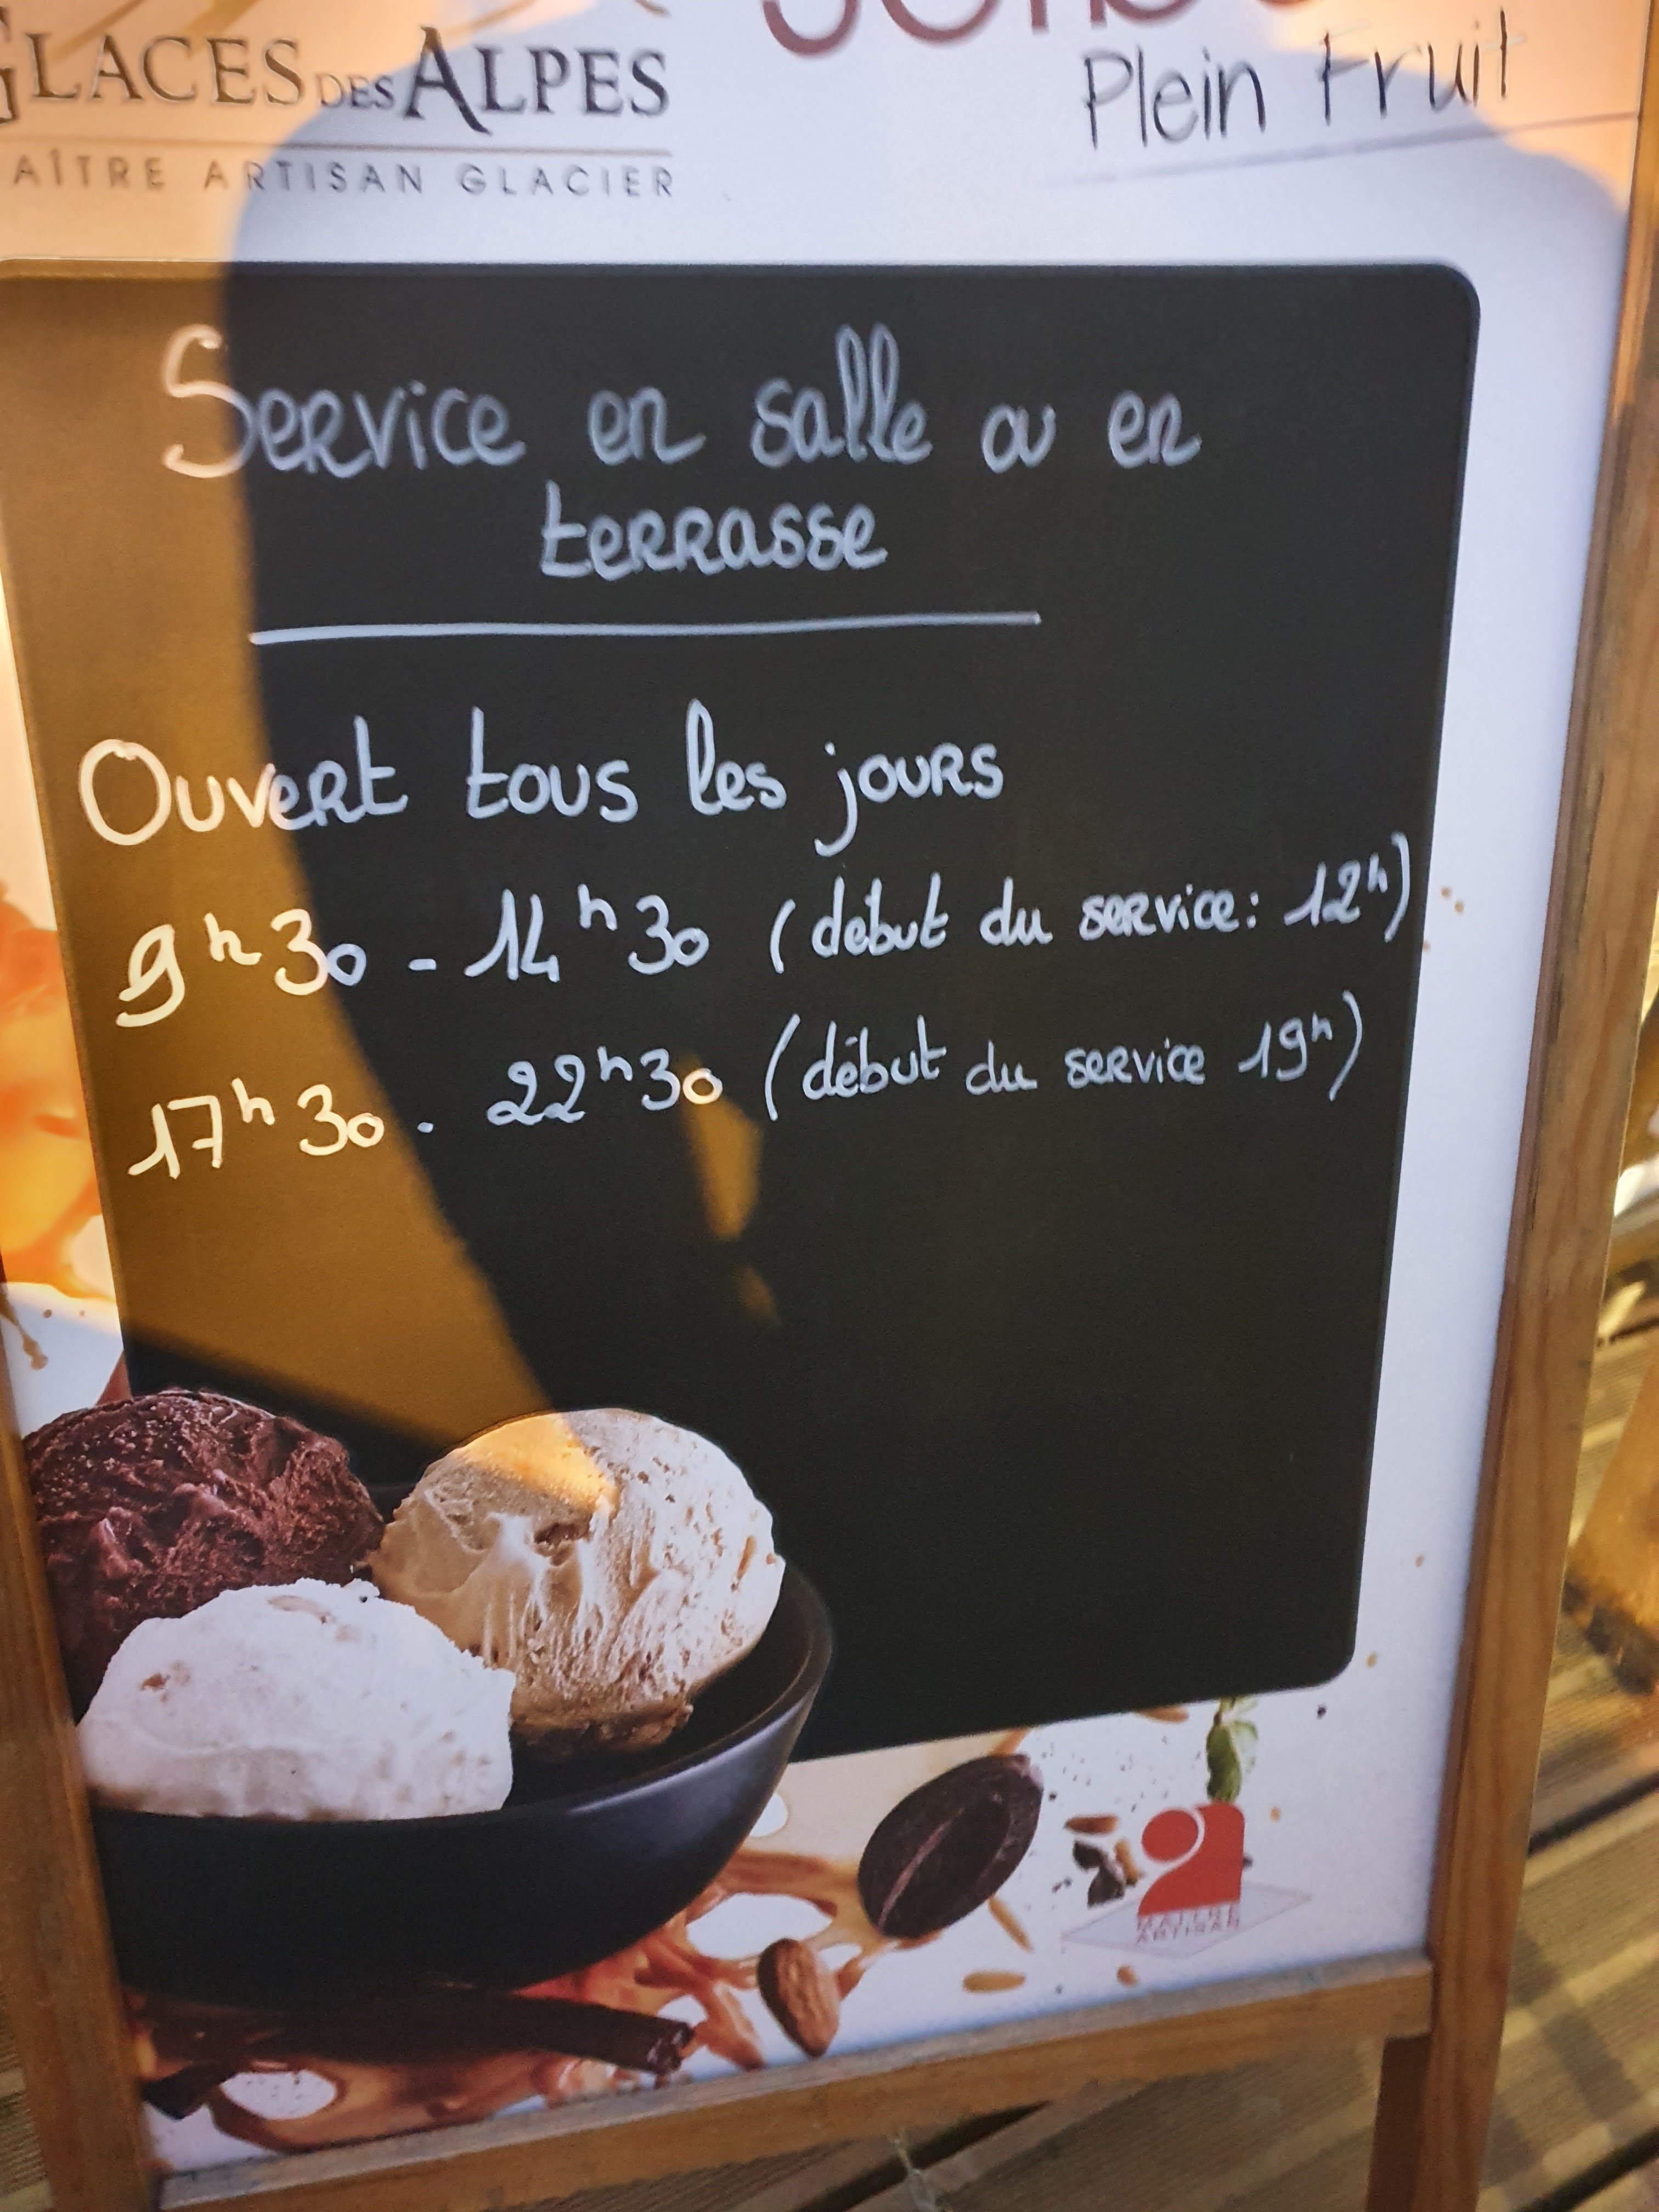 GLACES DES ALPES
MAÎTRE ARTISAN GLACIER
Plein Fruit
Service en salle ou en
terrasse
Ouvert tous les jours
9h30 - 14h30 (début du service: 12h)
17h30 - 22h30 (début du service 19h)
MAITRE
ARTISAN